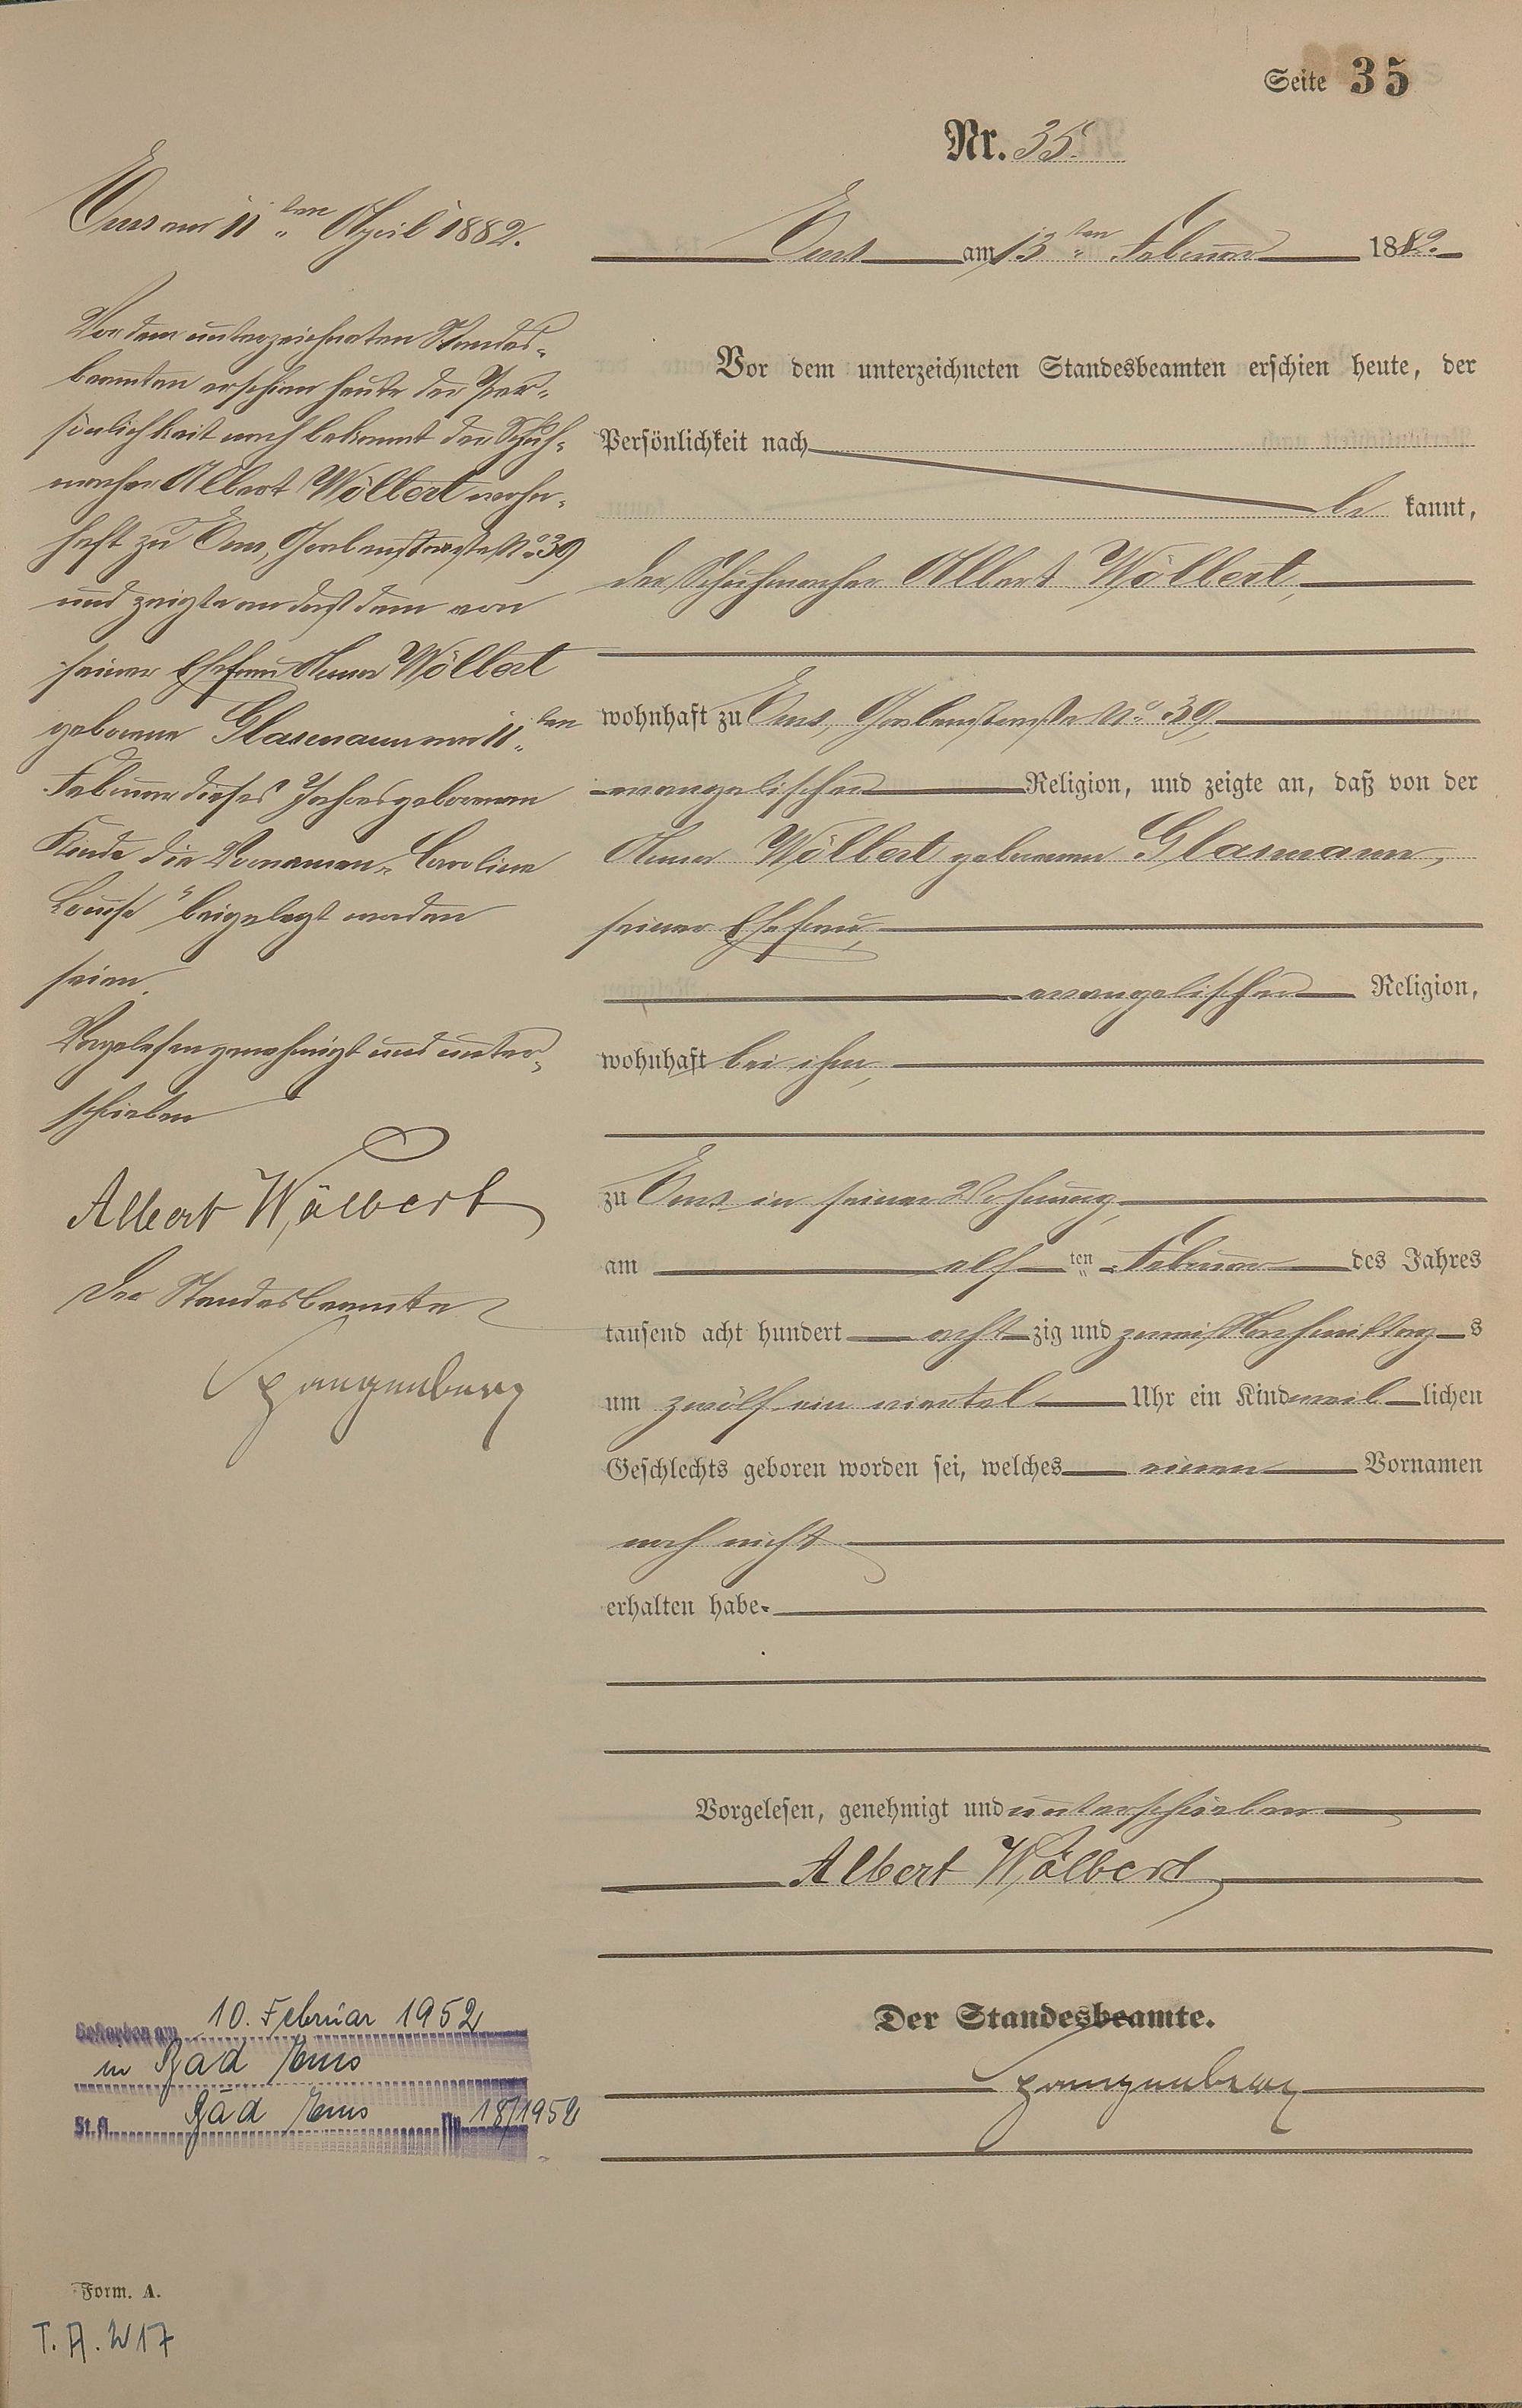 Seite 35
Nr. 35.
Ems am 11ten April 1882.
Vor dem unterzeichneten Standes-
beamten erschien heute der Per-
sönlichkeit nach bekannt der Schuh-
macher Albert Wölbert wohn-
haft zu Ems, Grabenstraße No 39
und zeigte an daß dem von
seiner Ehefrau Anna Wölbert
geborene Glasmann am 11ten
Februar dieses Jahres geborenen
Kinde die Vornamen „Caroline
Louise" beigelegt worden
seien.
Vorgelesen genehmigt und unter-
schrieben
Albert Wölbert
Der Standesbeamte
Spangenberg
Gestorben am 10. Februar 1952
in Bad Ems
St.A. Bad Ems Nr 18/1952
Form. A.
T. A. W 17
Ems am 13ten Februar 1882.
Vor dem unterzeichneten Standesbeamten erschien heute, der
Persönlichkeit nach
be kannt,
der Schuhmacher Albert Wölbert,
wohnhaft zu Ems, Grabenstraße No 39,
evangelischer Religion, und zeigte an, daß von der
Anna Wölbert geborenen Glasmann,
seiner Ehefrau,
evangelischer Religion,
wohnhaft bei ihm,
zu Ems in seiner Wohnung,
am elf ten Februar des Jahres
tausend acht hundert acht zig und zwei Nachmittag s
um zwölf ein viertel Uhr ein Kind weib lichen
Geschlechts geboren worden sei, welches einen Vornamen
noch nicht
erhalten habe.
Vorgelesen, genehmigt und unterschrieben
Albert Wölbert
Der Standesbeamte.
Spangenberg